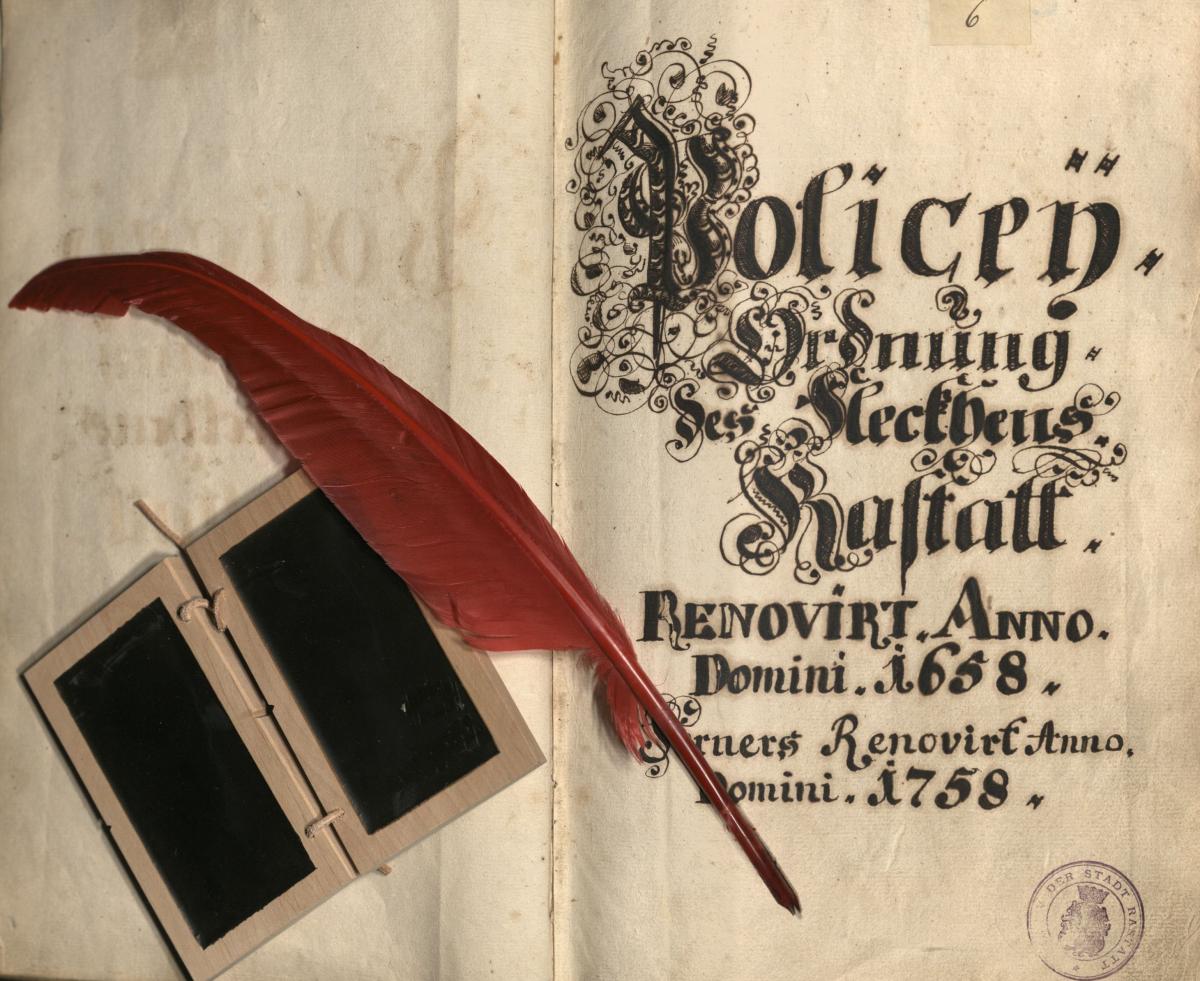 6
Policeÿ.
Ordnung.
des Fleckhens.
Rastatt.
RENOVIRT. ANNO.
Domini. 1658.
Ferners Renovirt Anno.
Domini. 1758.
DER STADT RASTATT